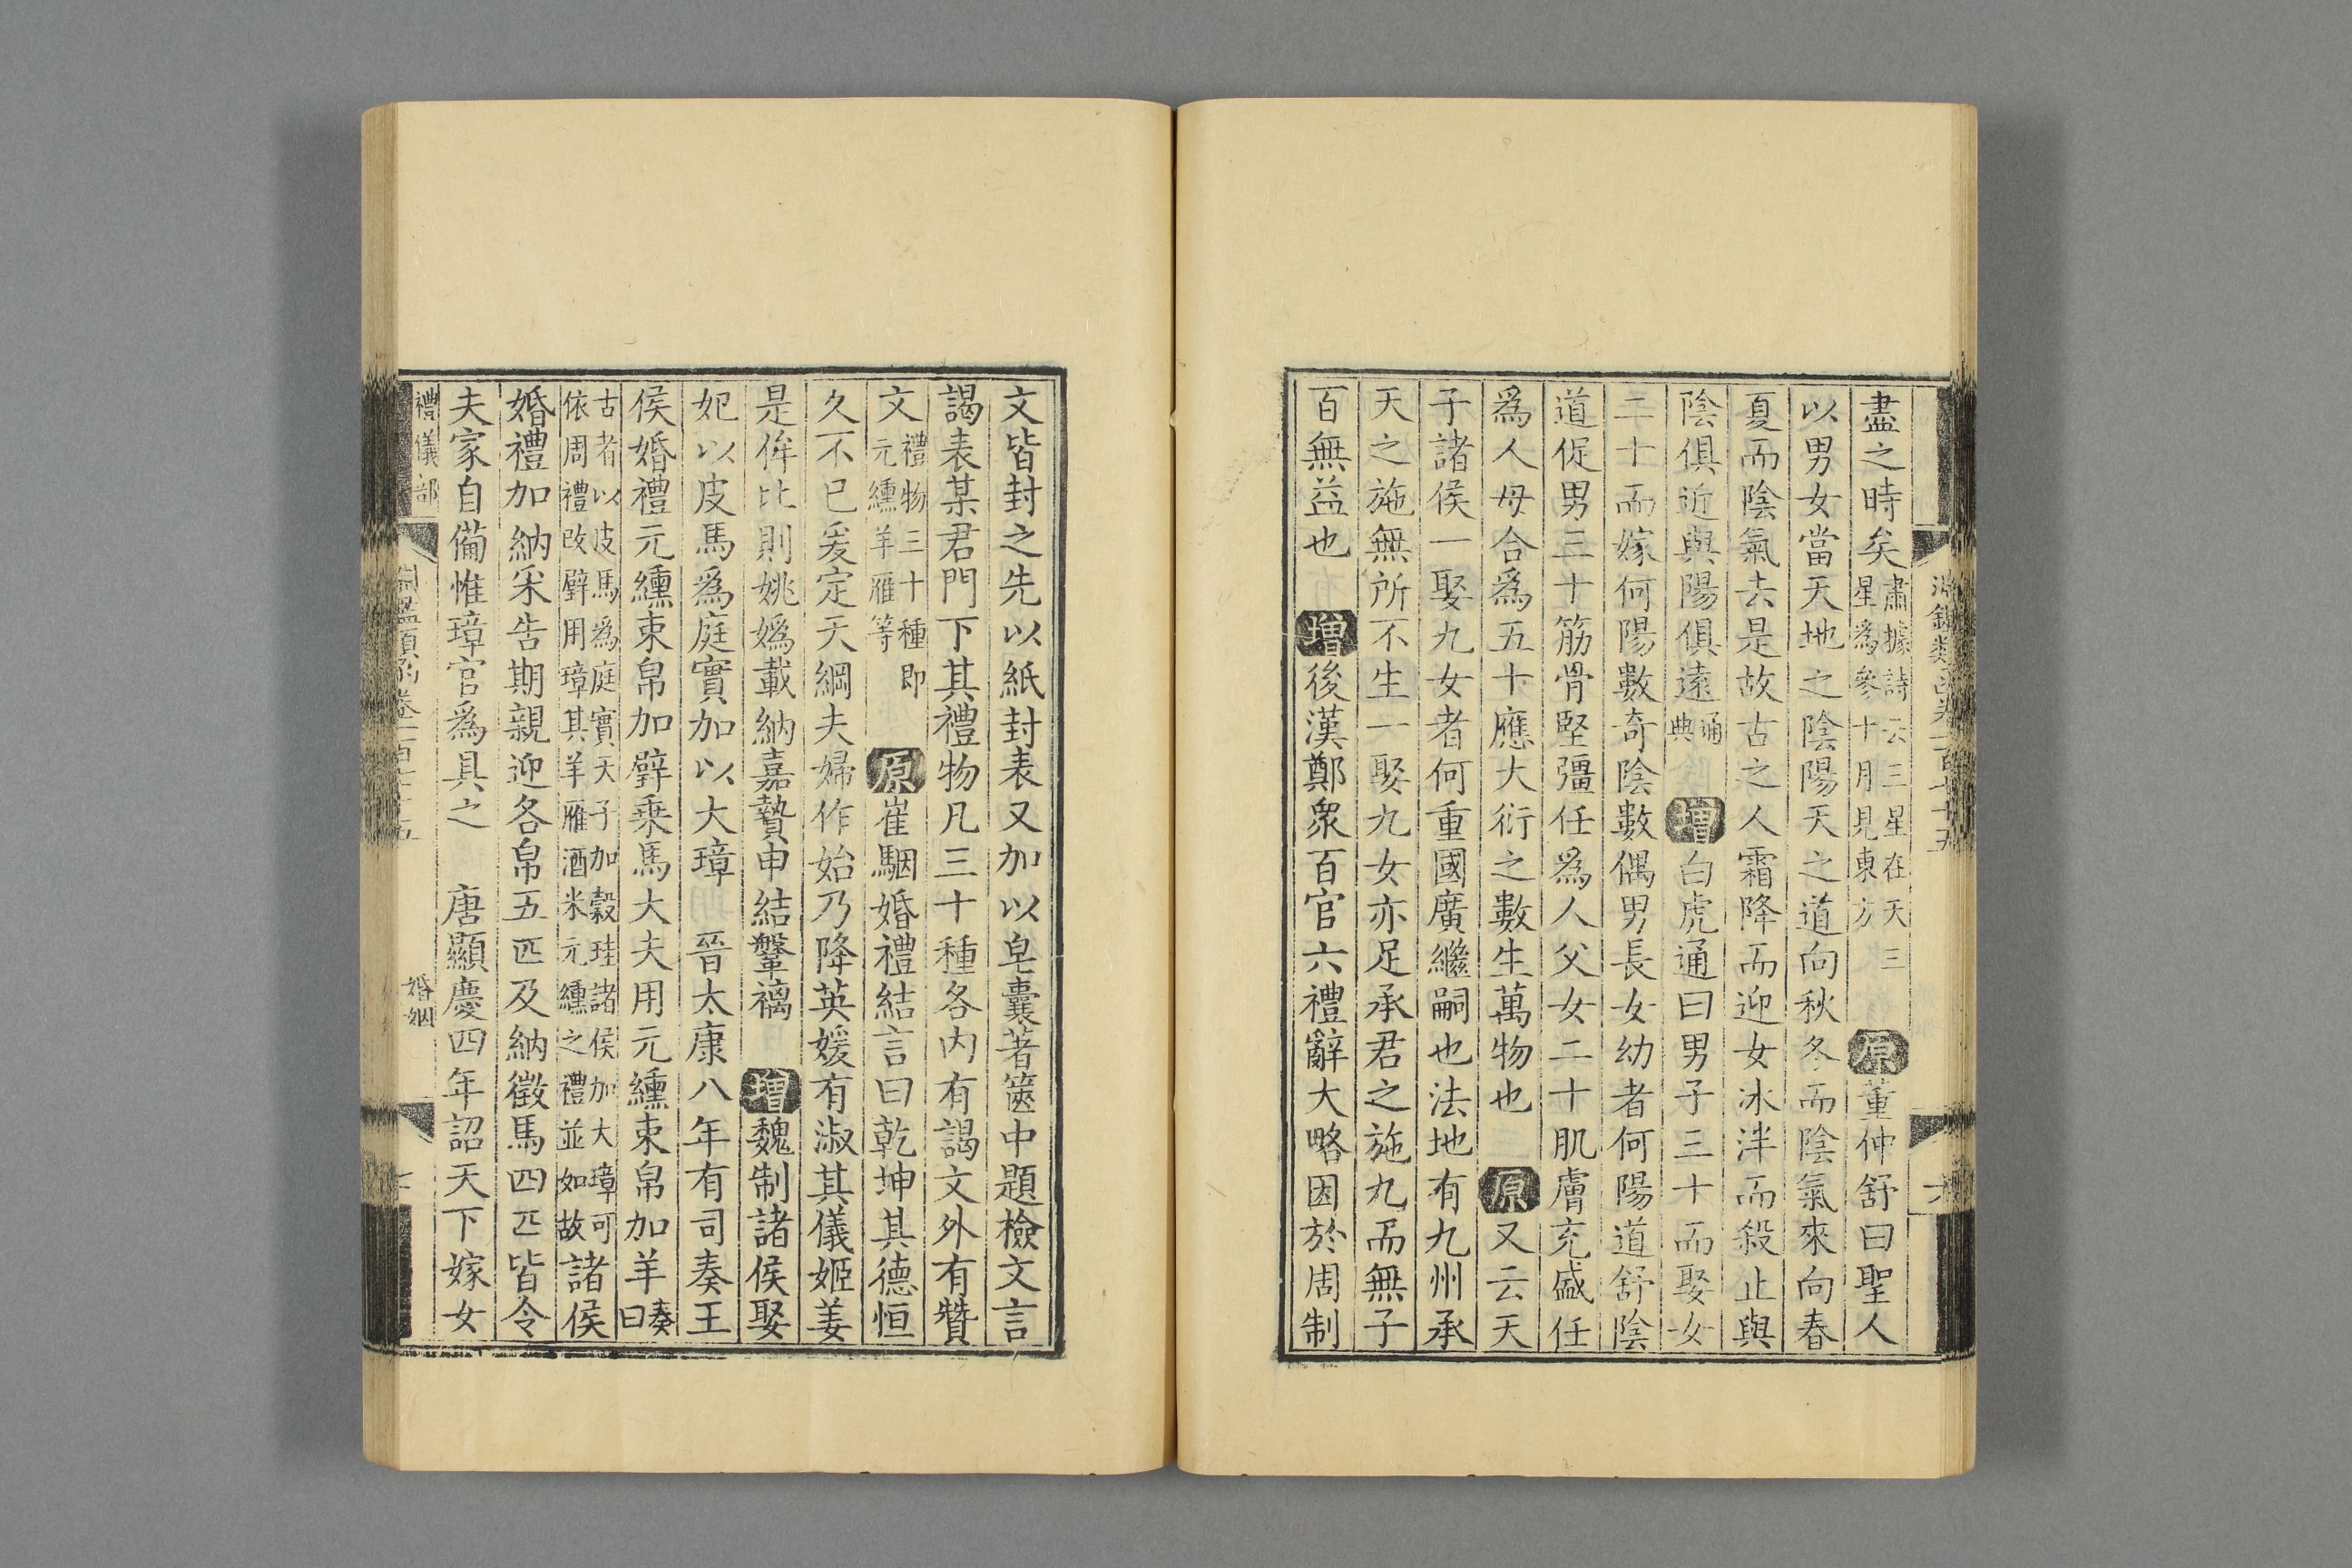 盡之時矣肅據詩云三星在天三星爲參十月見東方 原董仲舒曰聖人
以男女當天地之陰陽天之道向秋冬而陰氣來向春
夏而陰氣去是故古之人霜降而迎女冰泮而殺止與
陰俱近與陽俱遠通典 增白虎通曰男子三十而娶女
二十而嫁何陽數奇陰數偶男長女幼者何陽道舒陰
道促男三十筋骨堅彊任爲人父女二十肌膚充盛任
爲人母合爲五十應大衍之數生萬物也 原又云天
子諸侯一娶九女者何重國廣繼嗣也法地有九州承
天之施無所不生一娶九女亦足承君之施九而無子
百無益也 增後漢鄭衆百官六禮辭大略因於周制
文皆封之先以紙封表又加以皁囊著篋中題檢文言
謁表某君門下其禮物凡三十種各内有謁文外有贊
文禮物三十種即元纁羊雁等 原崔駰婚禮結言曰乾坤其德恒
久不已爰定天綱夫婦作始乃降英媛有淑其儀姬姜
是侔比則姚嬀載納嘉贄申結鞶褵 增魏制諸侯娶
妃以皮馬爲庭實加以大璋 晉太康八年有司奏王
侯婚禮元纁束帛加璧乗馬大夫用元纁束帛加羊奏曰
古者以皮馬爲庭實天子加穀珪諸侯加大璋可依周禮改璧用璋其羊雁酒米元纁之禮並如故諸侯
婚禮加納采告期親迎各帛五匹及納徵馬四匹皆令
夫家自備惟璋官爲具之 唐顯慶四年詔天下嫁女
禮儀部 婚姻